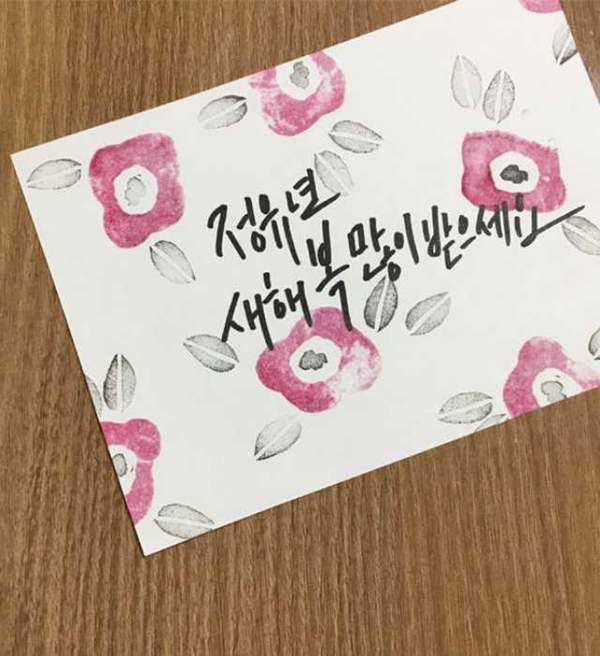 정유년
새해 복 많이 받으세요